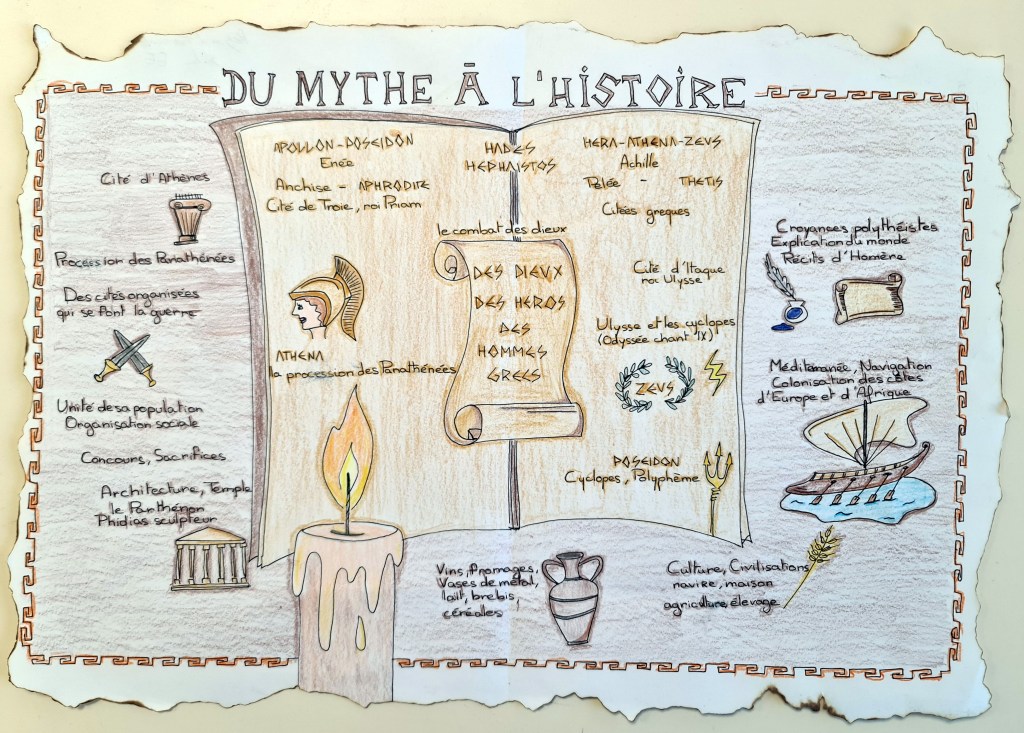 DU MYTHE À L'HISTOIRE
APOLLON-POSEIDON
Enée
Anchise - APHRODITE
Cité de Troie, roi Priam
HADES
HEPHAISTOS
HERA-ATHENA-ZEUS
Achille
Pélée - THETIS
Citées grecques
le combat des dieux
DES DIEUX
DES HEROS
DES
HOMMES
GRECS
ATHENA
la procession des Panathénées
Cité d'Itaque
roi Ulysse
Ulysse et les cyclopes
(Odyssée chant IX)
ZEUS
POSEIDON
Cyclopes, Polyphème
Cité d'Athènes
Procession des Panathénées
Des cités organisées
qui se font la guerre
Unité de sa population
Organisation sociale
Concours, Sacrifices
Architecture, Temple
le Parthénon
Phidias sculpteur
Croyances polythéistes
Explication du monde
Récits d'Homère
Méditerranée, Navigation
Colonisation des côtes
d'Europe et d'Afrique
Vins, fromages,
Vases de métal,
lait, brebis,
céréales
Culture, Civilisations
navire, maison
agriculture, élevage